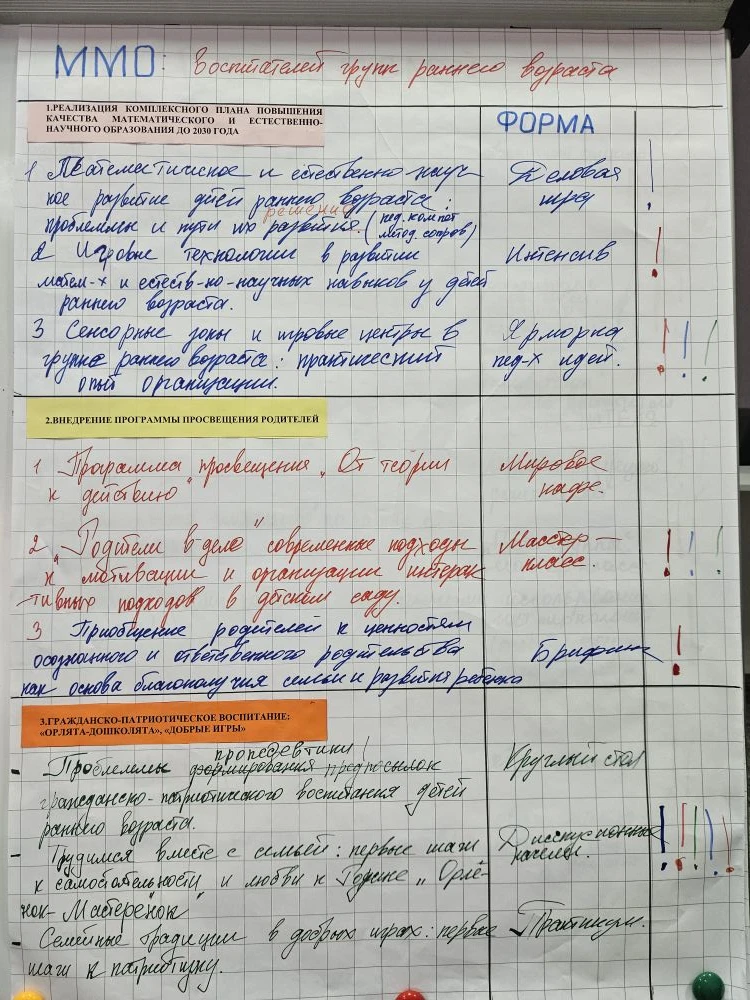 ММО: воспитателей групп раннего возраста
1.РЕАЛИЗАЦИЯ КОМПЛЕКСНОГО ПЛАНА ПОВЫШЕНИЯ
КАЧЕСТВА МАТЕМАТИЧЕСКОГО И ЕСТЕСТВЕННО-
НАУЧНОГО ОБРАЗОВАНИЯ ДО 2030 ГОДА
ФОРМА
1 Математическое и естественно-науч-
ное развитие детей раннего возраста:
решения
проблеммы и пути их развития. (пед. компет
метод. сопров)
Деловая
игра
!
2 Игровые технологии в развитии
матем-х и естеств-но-научных навыков у детей
раннего возраста.
Интенсив
!
3 Сенсорные зоны и игровые центры в
группе раннего возраста: практический
опыт организации.
Ярмарка
пед-х идей.
! ! !
2.ВНЕДРЕНИЕ ПРОГРАММЫ ПРОСВЕЩЕНИЯ РОДИТЕЛЕЙ
1 Программа просвещения „От теории
к действию"
Мировое
кафе.
2 „Родители в дело" современные подходы
к мотивации и организации интерак
-тивных подходов в детском саду.
Мастер-
класс.
! ! !
3 Приобщение родителей к ценностям
осознанного и ответственного родительства
как основа благополучия семьи и развития ребенка
Брифинг
!
3.ГРАЖДАНСКО-ПАТРИОТИЧЕСКОЕ ВОСПИТАНИЕ:
«ОРЛЯТА-ДОШКОЛЯТА», «ДОБРЫЕ ИГРЫ»
пропедевтики
- Проблеммы формирования предпосылок
гражданско-патриотического воспитания детей
раннего возраста.
Круглый стол
- Трудимся вместе с семьей: первые шаги
к самостоятельности и любви к Родине „Орлё-
нок-Мастерёнок"
Дискусионные
качели.
! ! ! ! !
- Семейные традиции в добрых играх: первые
шаги к патриотизму.
Практикум.